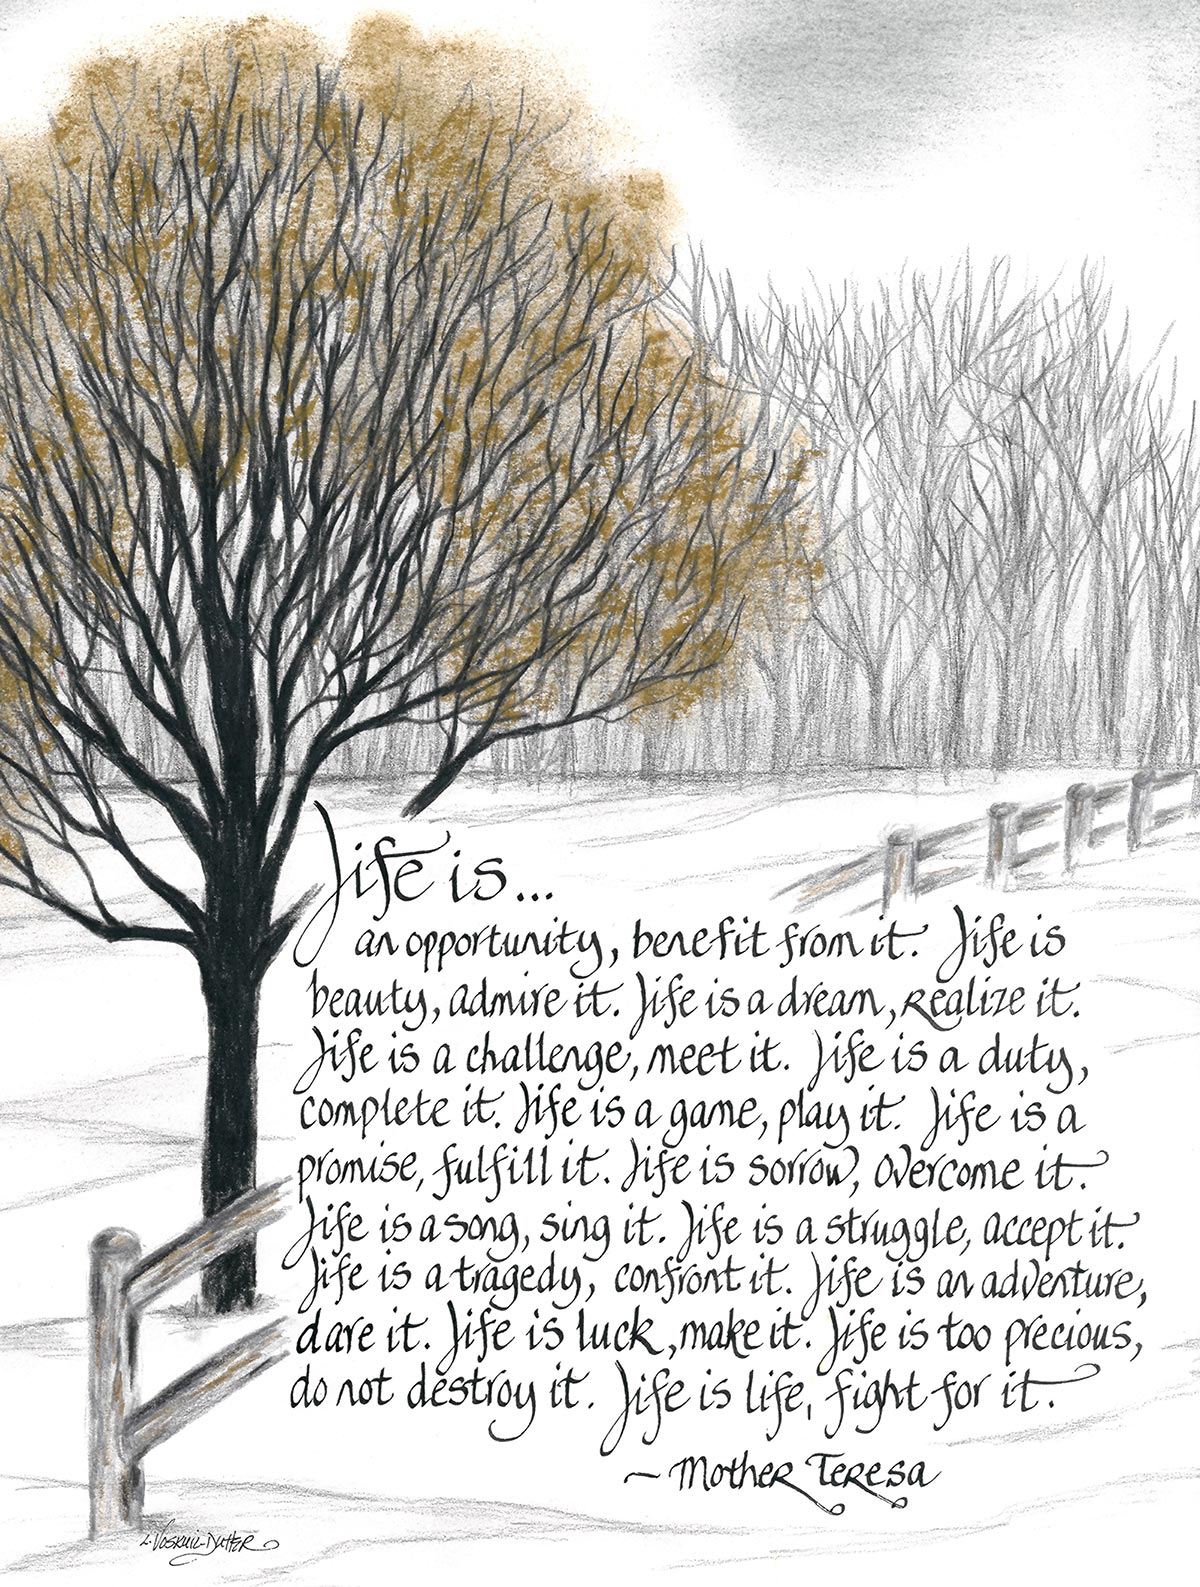 Life is...
an opportunity, benefit from it. Life is
beauty, admire it. Life is a dream, realize it.
Life is a challenge, meet it. Life is a duty,
complete it. Life is a game, play it. Life is a
promise, fulfill it. Life is sorrow, overcome it.
Life is a song, sing it. Life is a struggle, accept it.
Life is a tragedy, confront it. Life is an adventure,
dare it. Life is luck, make it. Life is too precious,
do not destroy it. Life is life, fight for it.
~ Mother Teresa
L. Voskuil-Dutter